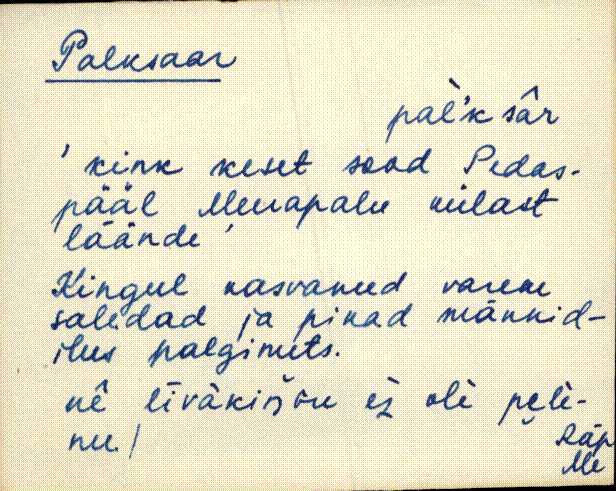 Palksaar
pàl'k sâr
' kink keset sood Pedas-
pääl Meerapalu külast
läände '
Kingul kasvanud varem
saledad ja pikad männid-
ilus palgimets.
nê līvàkiŋ
ei̯ olè
nu. /
Räp
Me